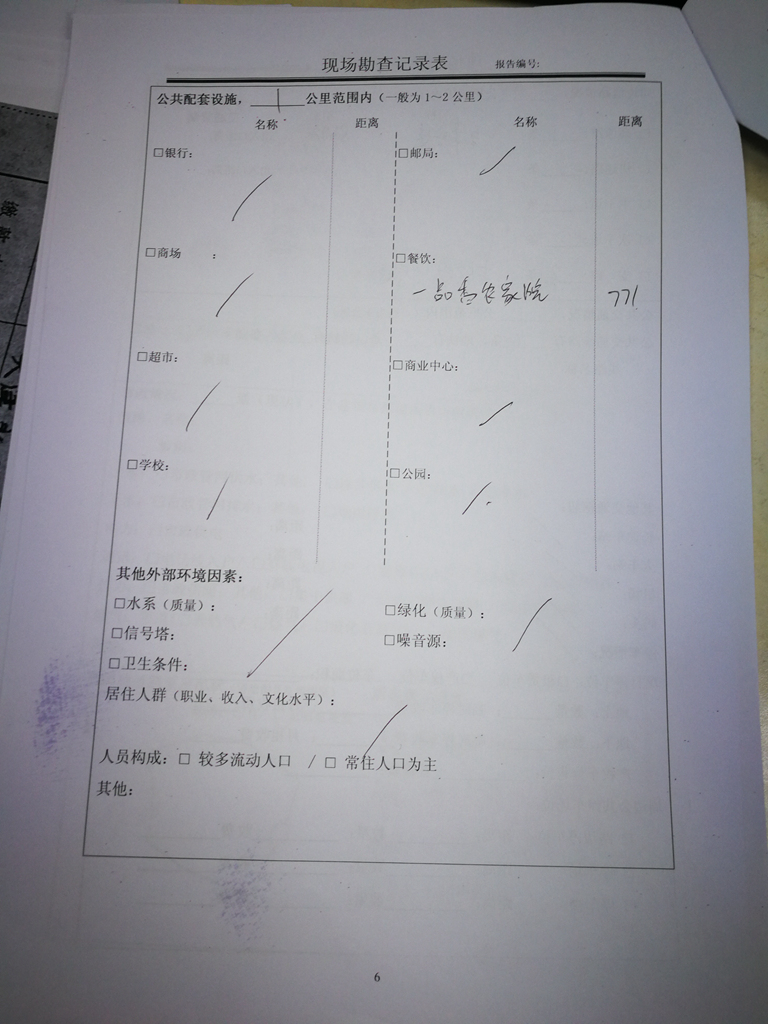 现场勘查记录表 报告编号:
公共配套设施，1公里范围内（一般为 1～2 公里）
名称 距离 名称 距离
□银行： / □邮局： /
□商场 ： / □餐饮：
一品香农家院 771
□超市： / □商业中心： /
□学校： / □公园： /
其他外部环境因素：
□水系（质量）： / □绿化（质量）： /
□信号塔： □噪音源：
□卫生条件：
居住人群（职业、收入、文化水平）：
/
人员构成：□ 较多流动人口 / □ 常住人口为主
其他：
6